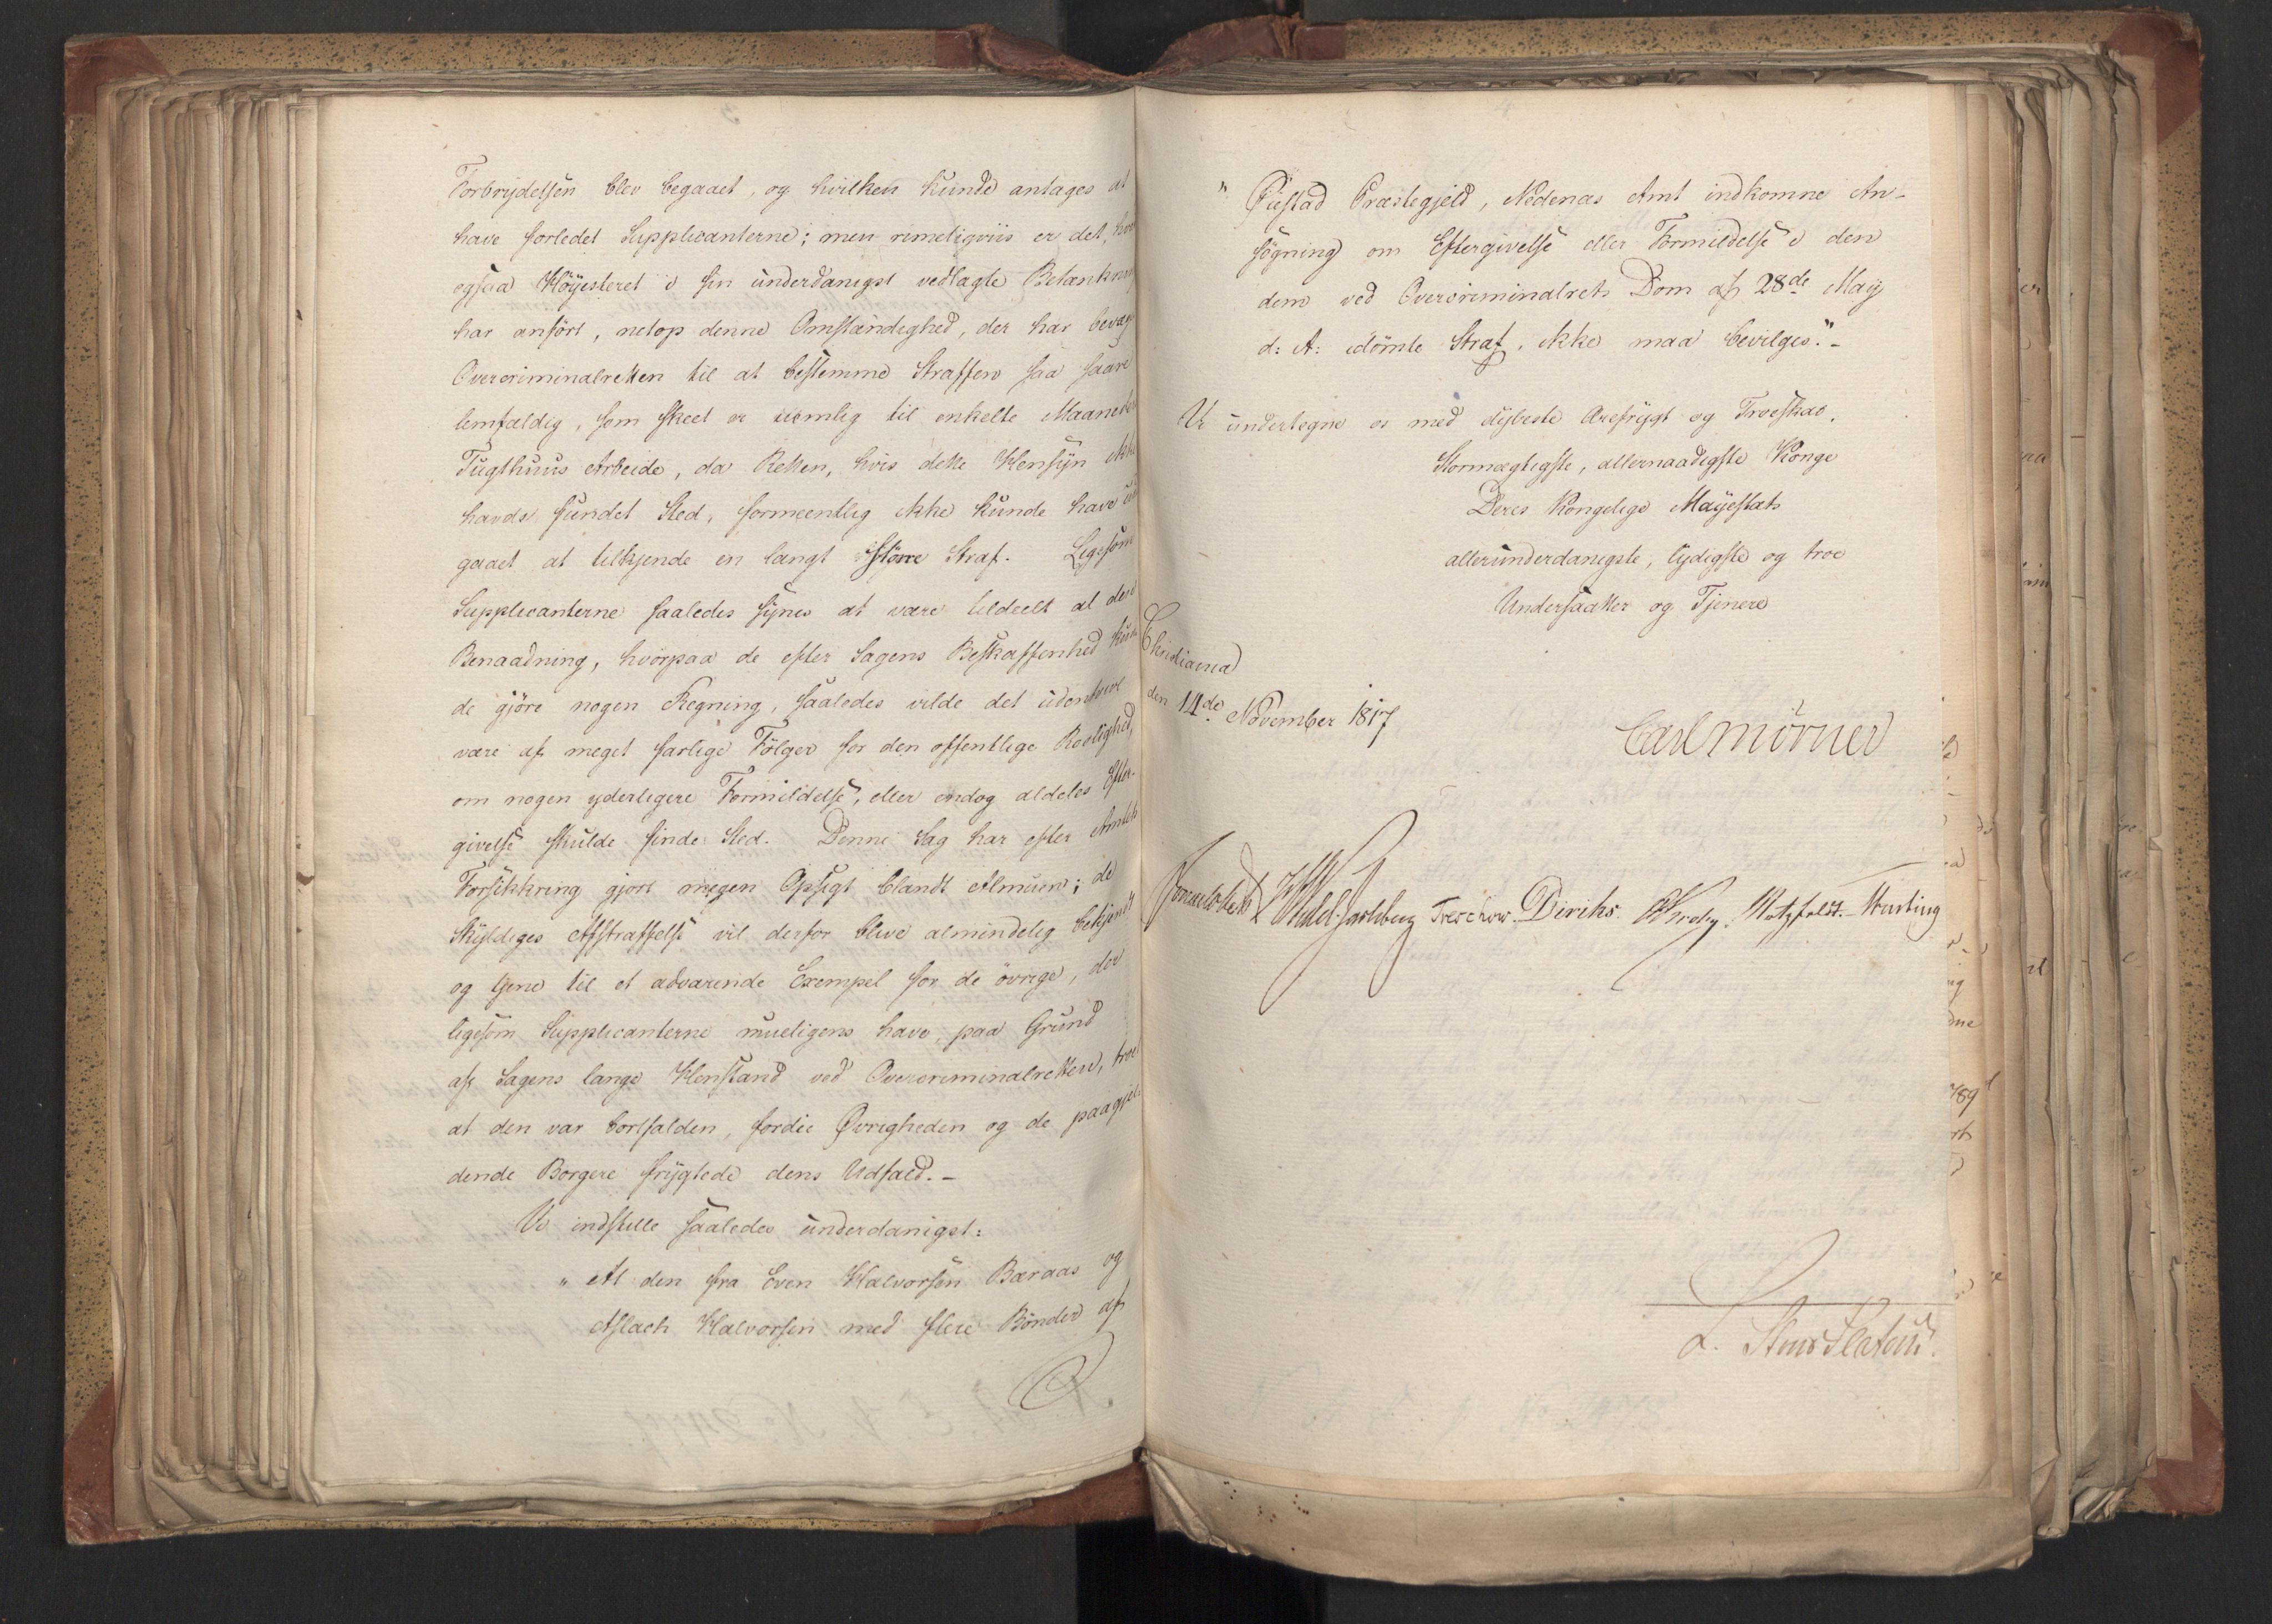 Forbrydelsen blev begaaet, og hvilken kunde antages at
have forledet Supplicanterne; men rimeligviis er det,
ogsaa Höyesteret i sin underdanigst vedlagte Betænkning
har anført, netop denne Omstændighed, der har bevæg
Overcriminalretten til at bestemme Straffen saa saare
lemfældig, som skeet er nemlig til enkelte Maaneders
Tugthuus Arbeide, da Retten, hvis dette Hensyn ikke
havde fundet Sted, formeentlig ikke kunde have
gaaet at tilkjende en langt större Straf. Ligesom
Supplicanterne saaledes synes at være tildeelt al den
Benaadning, hvorpaa de efter Sagens Beskaffenhed kun
de gjöre nogen Regning, saaledes vilde det udentvivl
være af meget farlige Fölger for den offentlige Roelighed,
om nogen yderligere Formildelse, eller endog aldeles Efter-
givelse skulde finde Sted. Denne Sag har efter Amtets
Forsikkring gjort megen Opsigt blandt Almuen; de
Skyldiges Afstraffelse vil derfor blive almindelig bekjendt
og tjene til et advarende Exempel for de övrige, der
ligesom Supplicanterne mueligens have, paa Grund
af Sagens lange Henstand ved Overcriminalretten, troet
at den var bortfalden, fordie Øvrigheden og de paagjel
dende Borgere frygtede dens Udfald.-
Vi indstille saaledes underdanigst:
" At den fra Even Halvorsen Baraas og
Aslach Halvorsen med flere Bönder af
" Øiestad Præstegjeld, Nedenæs Amt indkomne An-
søgning om Eftergivelse eller Formildelse i den
dem ved Overcriminalrets Dom af 28de May
d: A: idömte Straf, ikke maa bevilges."-
Vi undertegne os med dybeste Ærefrygt og Troeskab.
Stormægtigste, allernaadigste Konge
Deres Kongelige Mayestæts
allerunderdanigste, lydigste og troe
Undersaatter og Tjenere
Christiania
den 14de November 1817
Carl Mörner
Sommerhielm Wedel-Jarlsberg Treschow. Diriks. Krog. Motzfeldt.- Harting